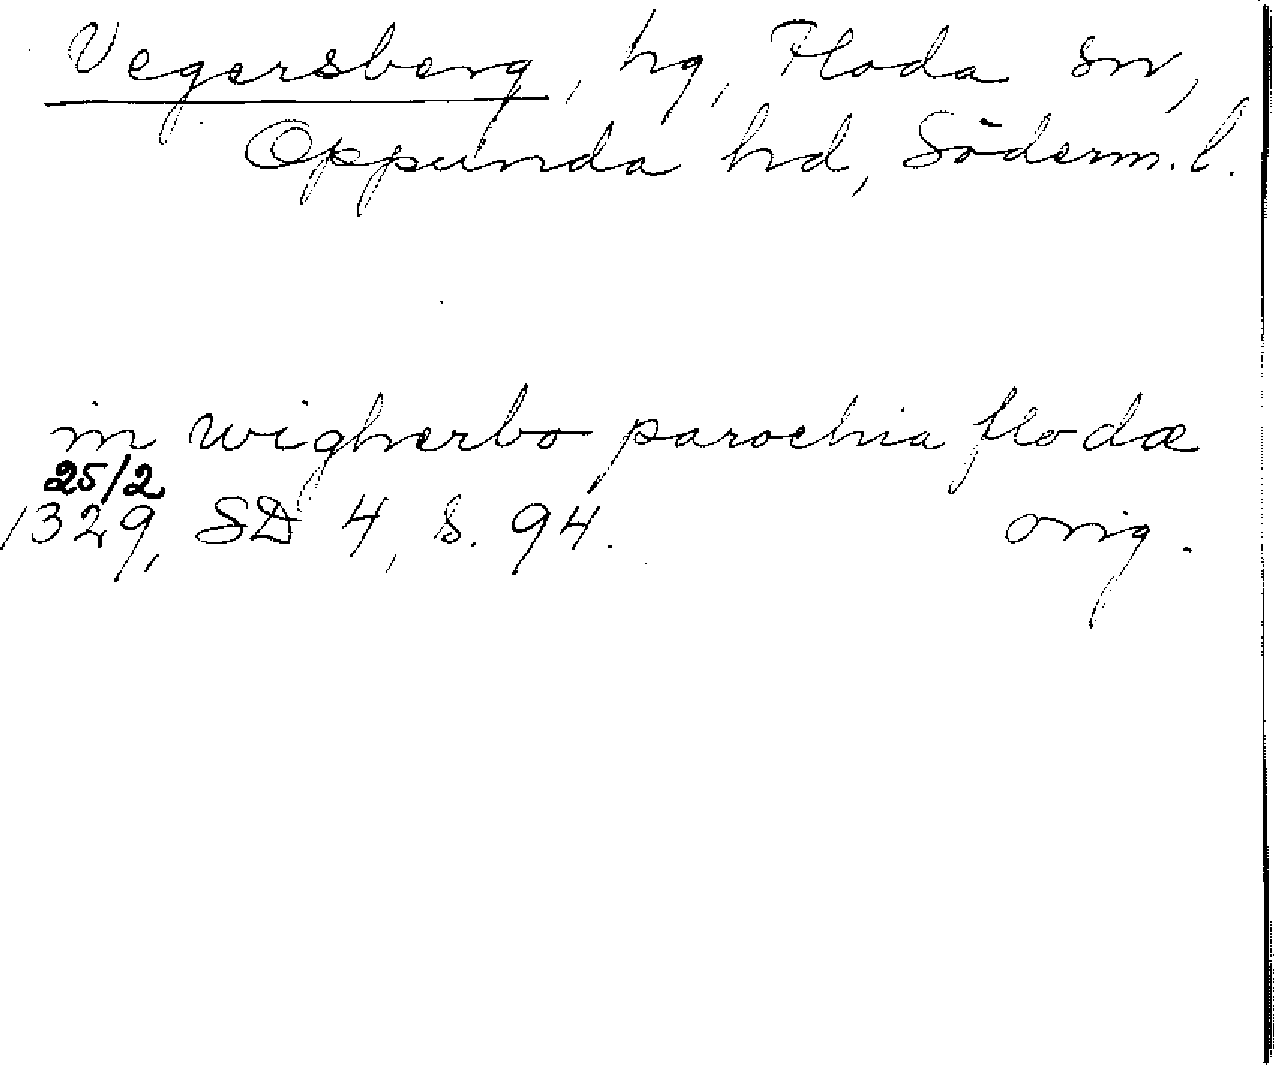 Vegersberg, hg, Floda sn,
Oppunda hd, Söderm. l.
in wigherbo parochia flodæ
25/2
1329, SD 4, s. 94. orig.